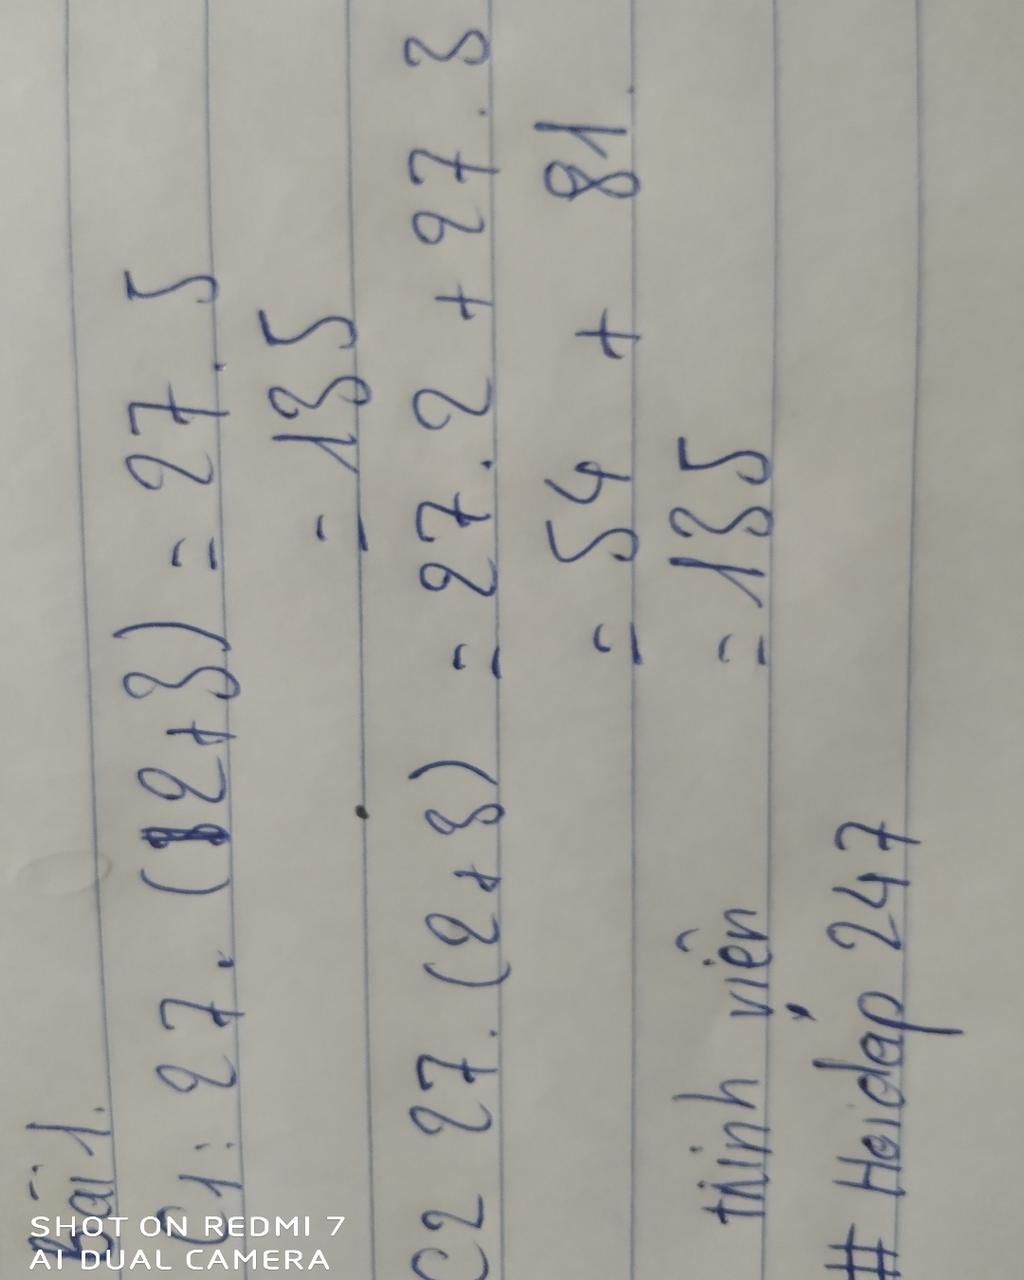 Bài 1.
C1: 27. (2+3) = 27.5
= 135
C2 27.(2+3) = 27.2 + 27.3
= 54 + 81
= 135
thinh viên
# Hoidáp 247
SHOT ON REDMI 7
AI DUAL CAMERA